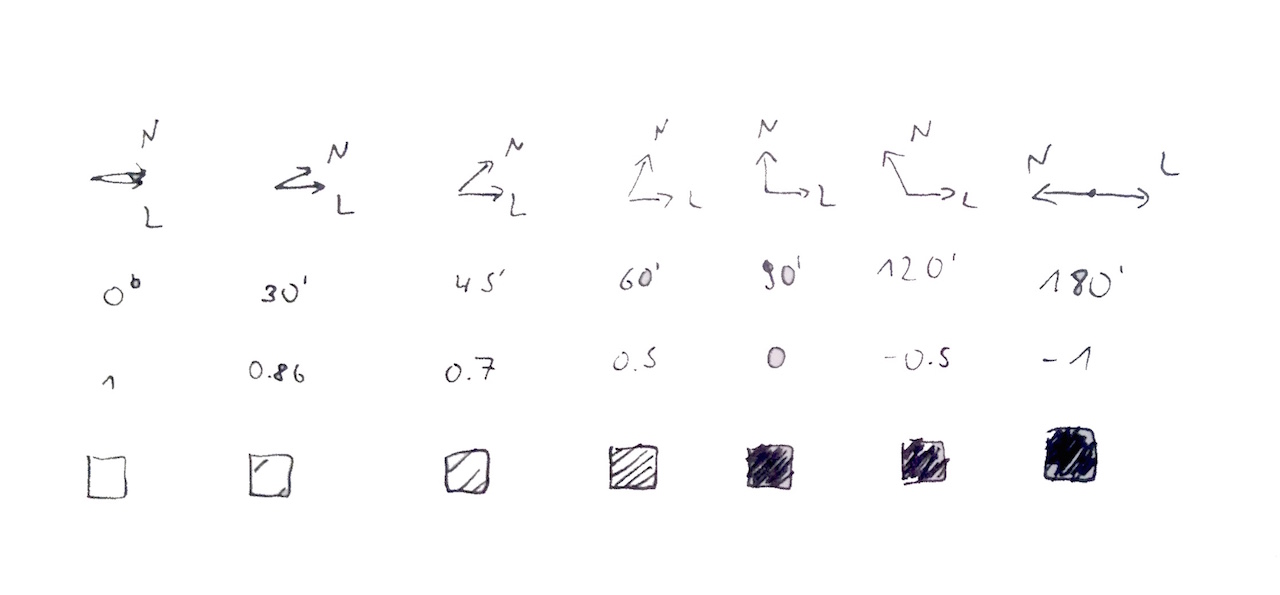 N N N N N N N L
L L L L L L
0° 30' 45' 60' 90' 120' 180'
1 0.86 0.7 0.5 0 -0.5 -1